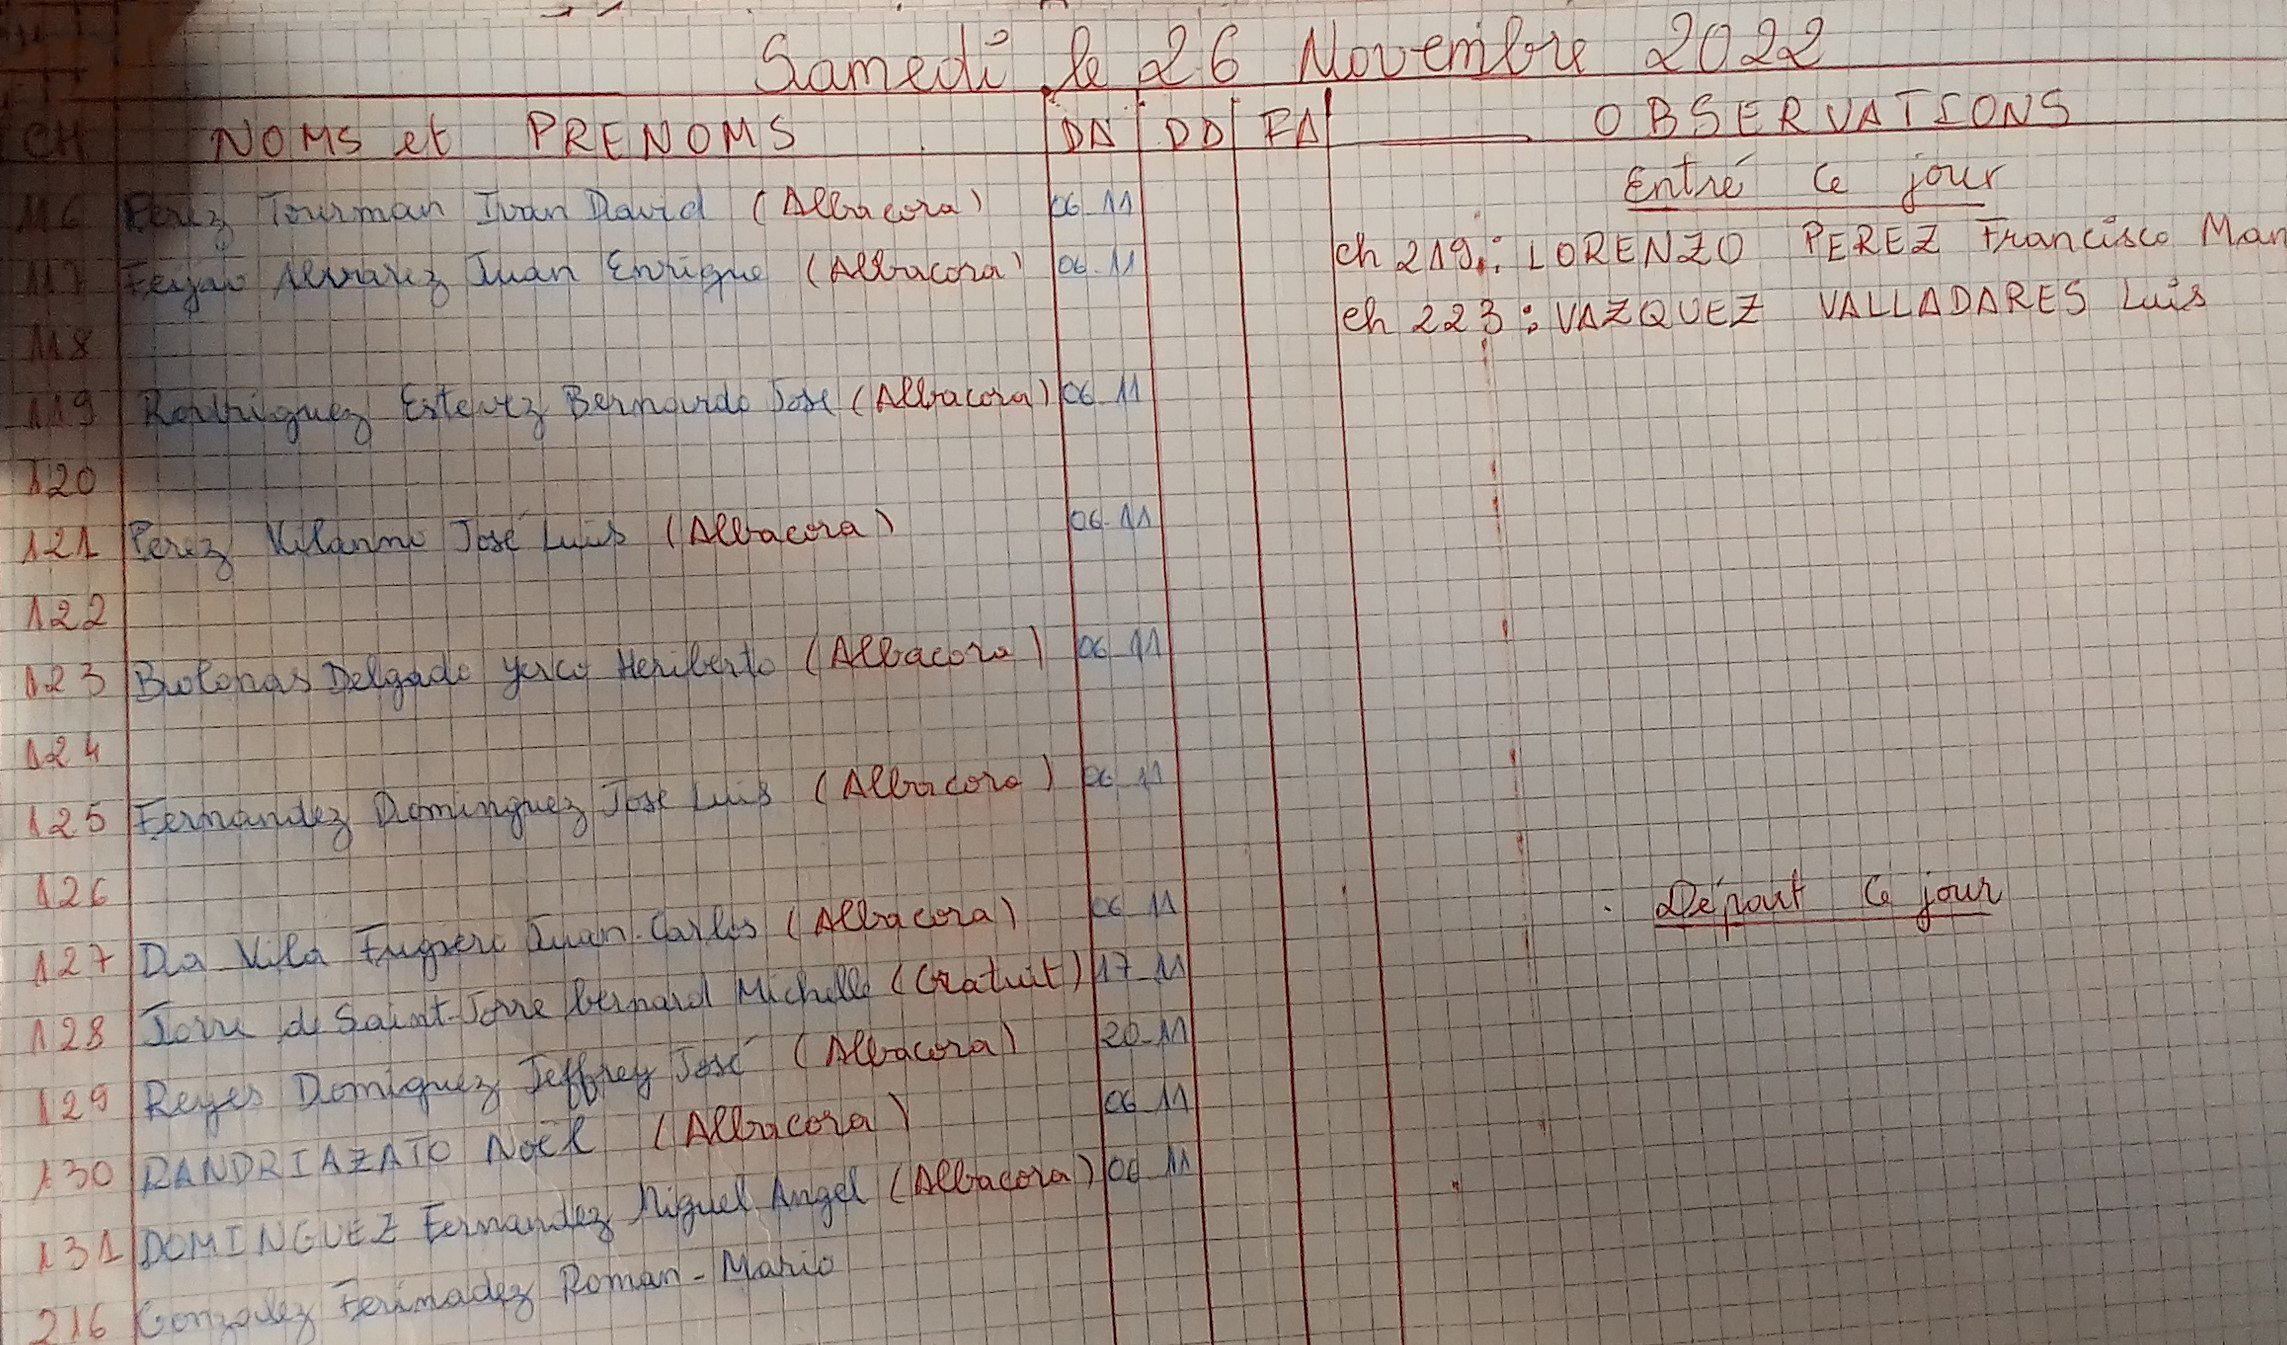 Samedi le 26 Novembre 2022
CH NOMS et PRENOMS DA DD FA OBSERVATIONS
Entré Ce jour
116 Perez Tourman Ivan David (Albacora) 06-11
ch 219 : LORENZO PEREZ Francisco Man
117 Feijao Alvarez Juan Enrique (Albacora) 06-11
ch 223 : VAZQUEZ VALLADARES Luis
118
119 Rodriguez Estevez Bernardo Jose (Albacora) 06-11
120
121 Perez Vilanno José Luis (Albacora) 06-11
122
123 Bolonas Delgado Yerco Heriberto (Albacora) 06-11
124
125 Fernandez Dominguez Jose Luis (Albacora) 06-11
126
Départ Ce jour
127 Da Vila Juan-Carlos (Albacora) 06-11
128 Torre de Saint-Torre bernard Michelle (Gratuit) 17-11
129 Reyes Domiguez Jeffrey José (Albacora) 20-11
130 RANDRIAZATO Noël (Albacora) 06-11
131 DOMINGUEZ Fernandez Miguel Angel (Albacora) 06-11
216 Gonzalez Ferinadez Roman-Mario